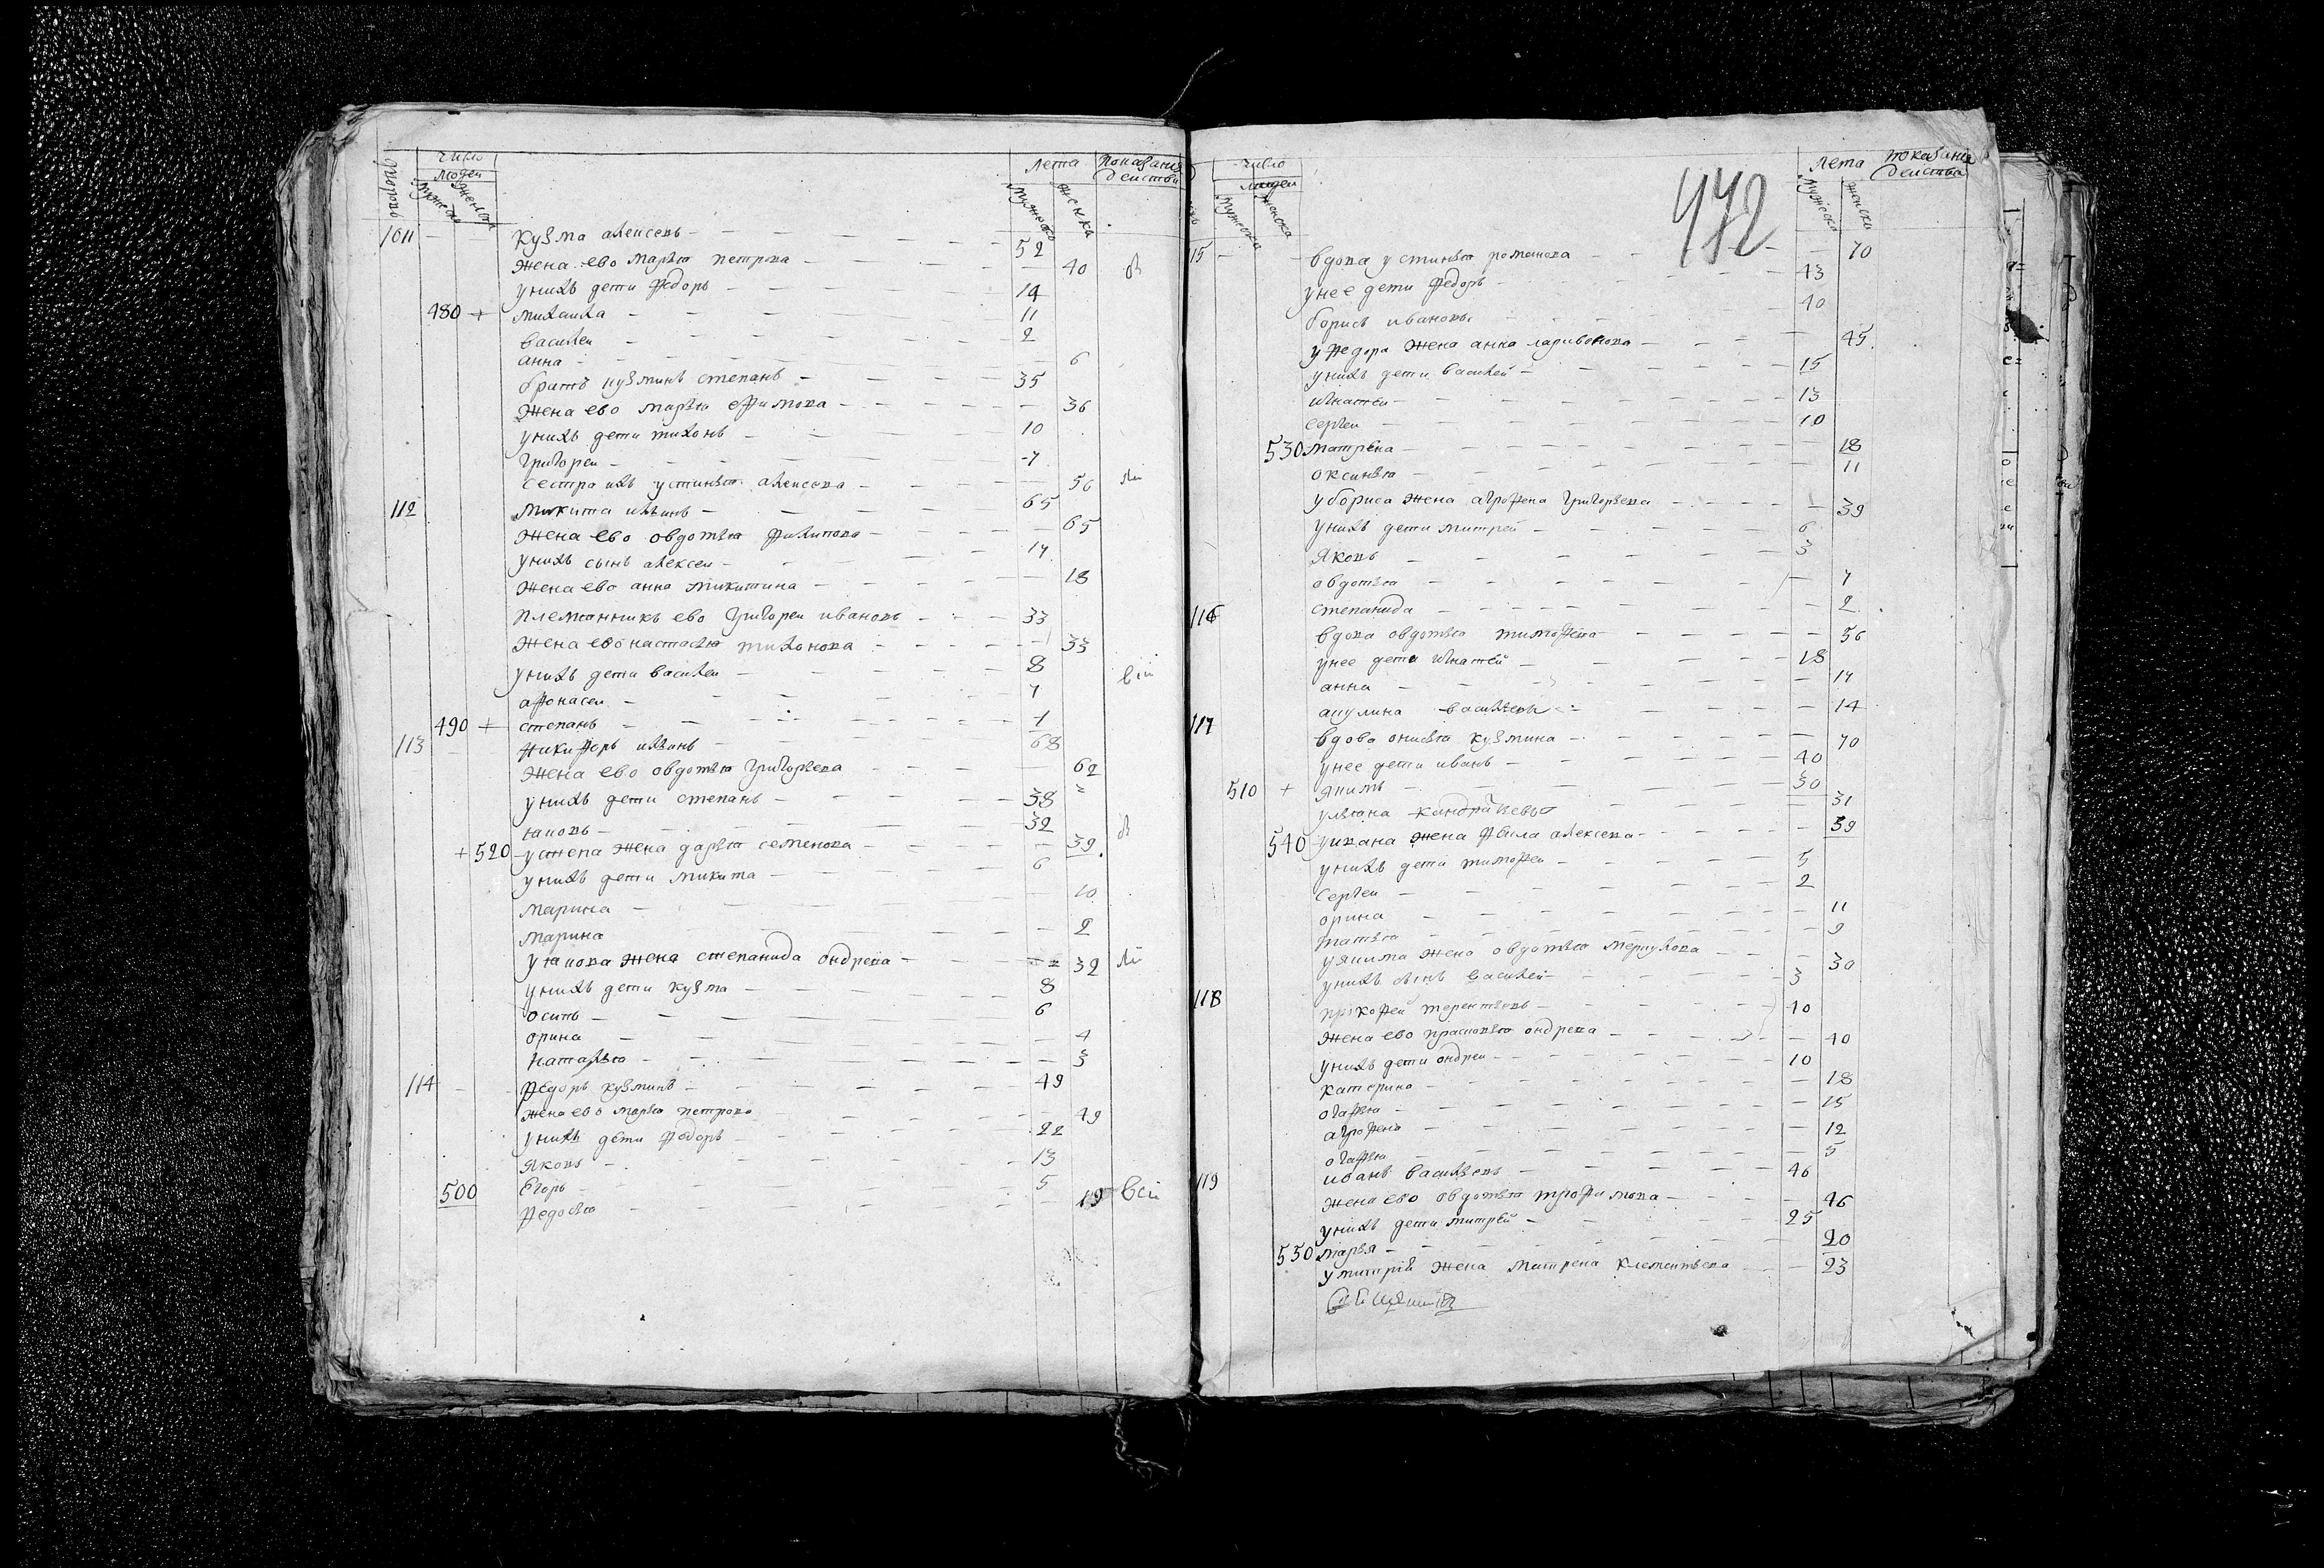 число
людей
лета
показания
действи
мужеска
женска
1011 кузма алексеевъ 52
жена ево марья петрова 40
у нихъ дети федоръ 14
480 + михаила 11
василеи 2
анна 6
братъ кузминъ степанъ 35
жена ево марья ефимова 36
у нихъ дети тихонъ 10
григореи 7
сестра ихъ устинья алексеева 56
112 микита ильинъ 65
жена ево овдотья филипова 65
у нихъ сынъ алексеи 17
жена ево анна микитина 18
племянникъ ево григореи ивановъ 33
жена ево настасья тихонова 33
у нихъ дети василеи 8
афонасеи 7
490 + степанъ 1
113 никифоръ ильинъ 68
жена ево овдотья григорьева 62
у нихъ дети степанъ 38
яковъ 32
+ 520 у степа жена дарья семенова 39
у нихъ дети микита 6
марина 10
марина 2
у якова жена степанида ондреева 32
у нихъ дети кузма 8
осипъ 6
орина 4
наталья 3
114 федоръ кузминъ 49
жена ево марья петрова 49
у нихъ дети федоръ 22
яковъ 13
500 егоръ 5
федосья 19
472
число
людей
мужеска
женска
лета
показания
действа
мужеска
женска
15 вдова устинья романова 70
у нее дети федоръ 43
борисъ ивановы 40
у федора жена анна ларивонова 45
у нихъ дети василей 15
игнатеи 13
сергеи 10
530 матрена 18
оксинья 11
у бориса жена агрофена григорьева 39
у нихъ дети митрей 6
яковъ 3
овдотья 7
степанида 2
116 вдова овдотья тимофеева 56
у нее дети игнатей 18
анна 17
акулина васильевы 14
117 вдова онисья кузмина 70
у нее дети иванъ 40
510 + якимъ 30
ульяна кандратьевы 31
540 у ивана жена фекла алексеева 39
у нихъ дети тимофеи 5
сергеи 2
орина 11
татья 9
у якима жена овдотья меркулова 30
у нихъ сынъ василей 3
118 прокофей терентьевъ 40
жена ево прасковья ондреева 40
у нихъ дети ондреи 10
катерина 18
огафья 15
агрофена 12
огафья 5
119 иванъ васильевъ 46
жена ево овдотья трофимова 46
у нихъ дети митрей 25
550 марья 20
у митрия жена матрена клементьева 23